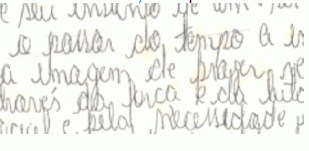 e seu insumo de um
o passar do tempo a
a imagem de prazer
através da força e da
e pela necessidade